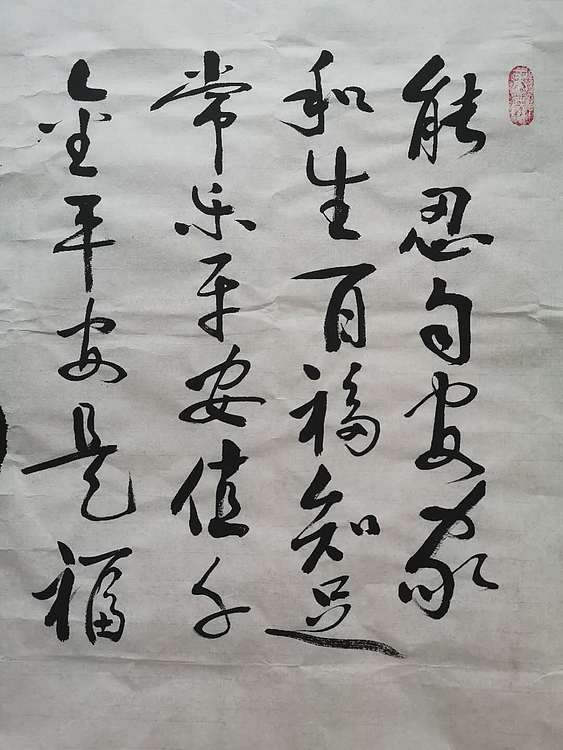 能忍自安家
和生百福知足
常乐平安值千
金平安是福